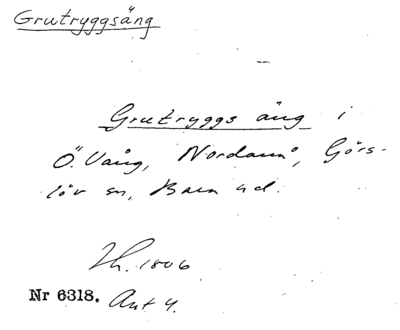 Grutryggsäng
Grutryggs äng i
Ö. Vång, Nordanå, Görs-
löv sn, Bara hd.
1806
Nr 6318. Ant 4.